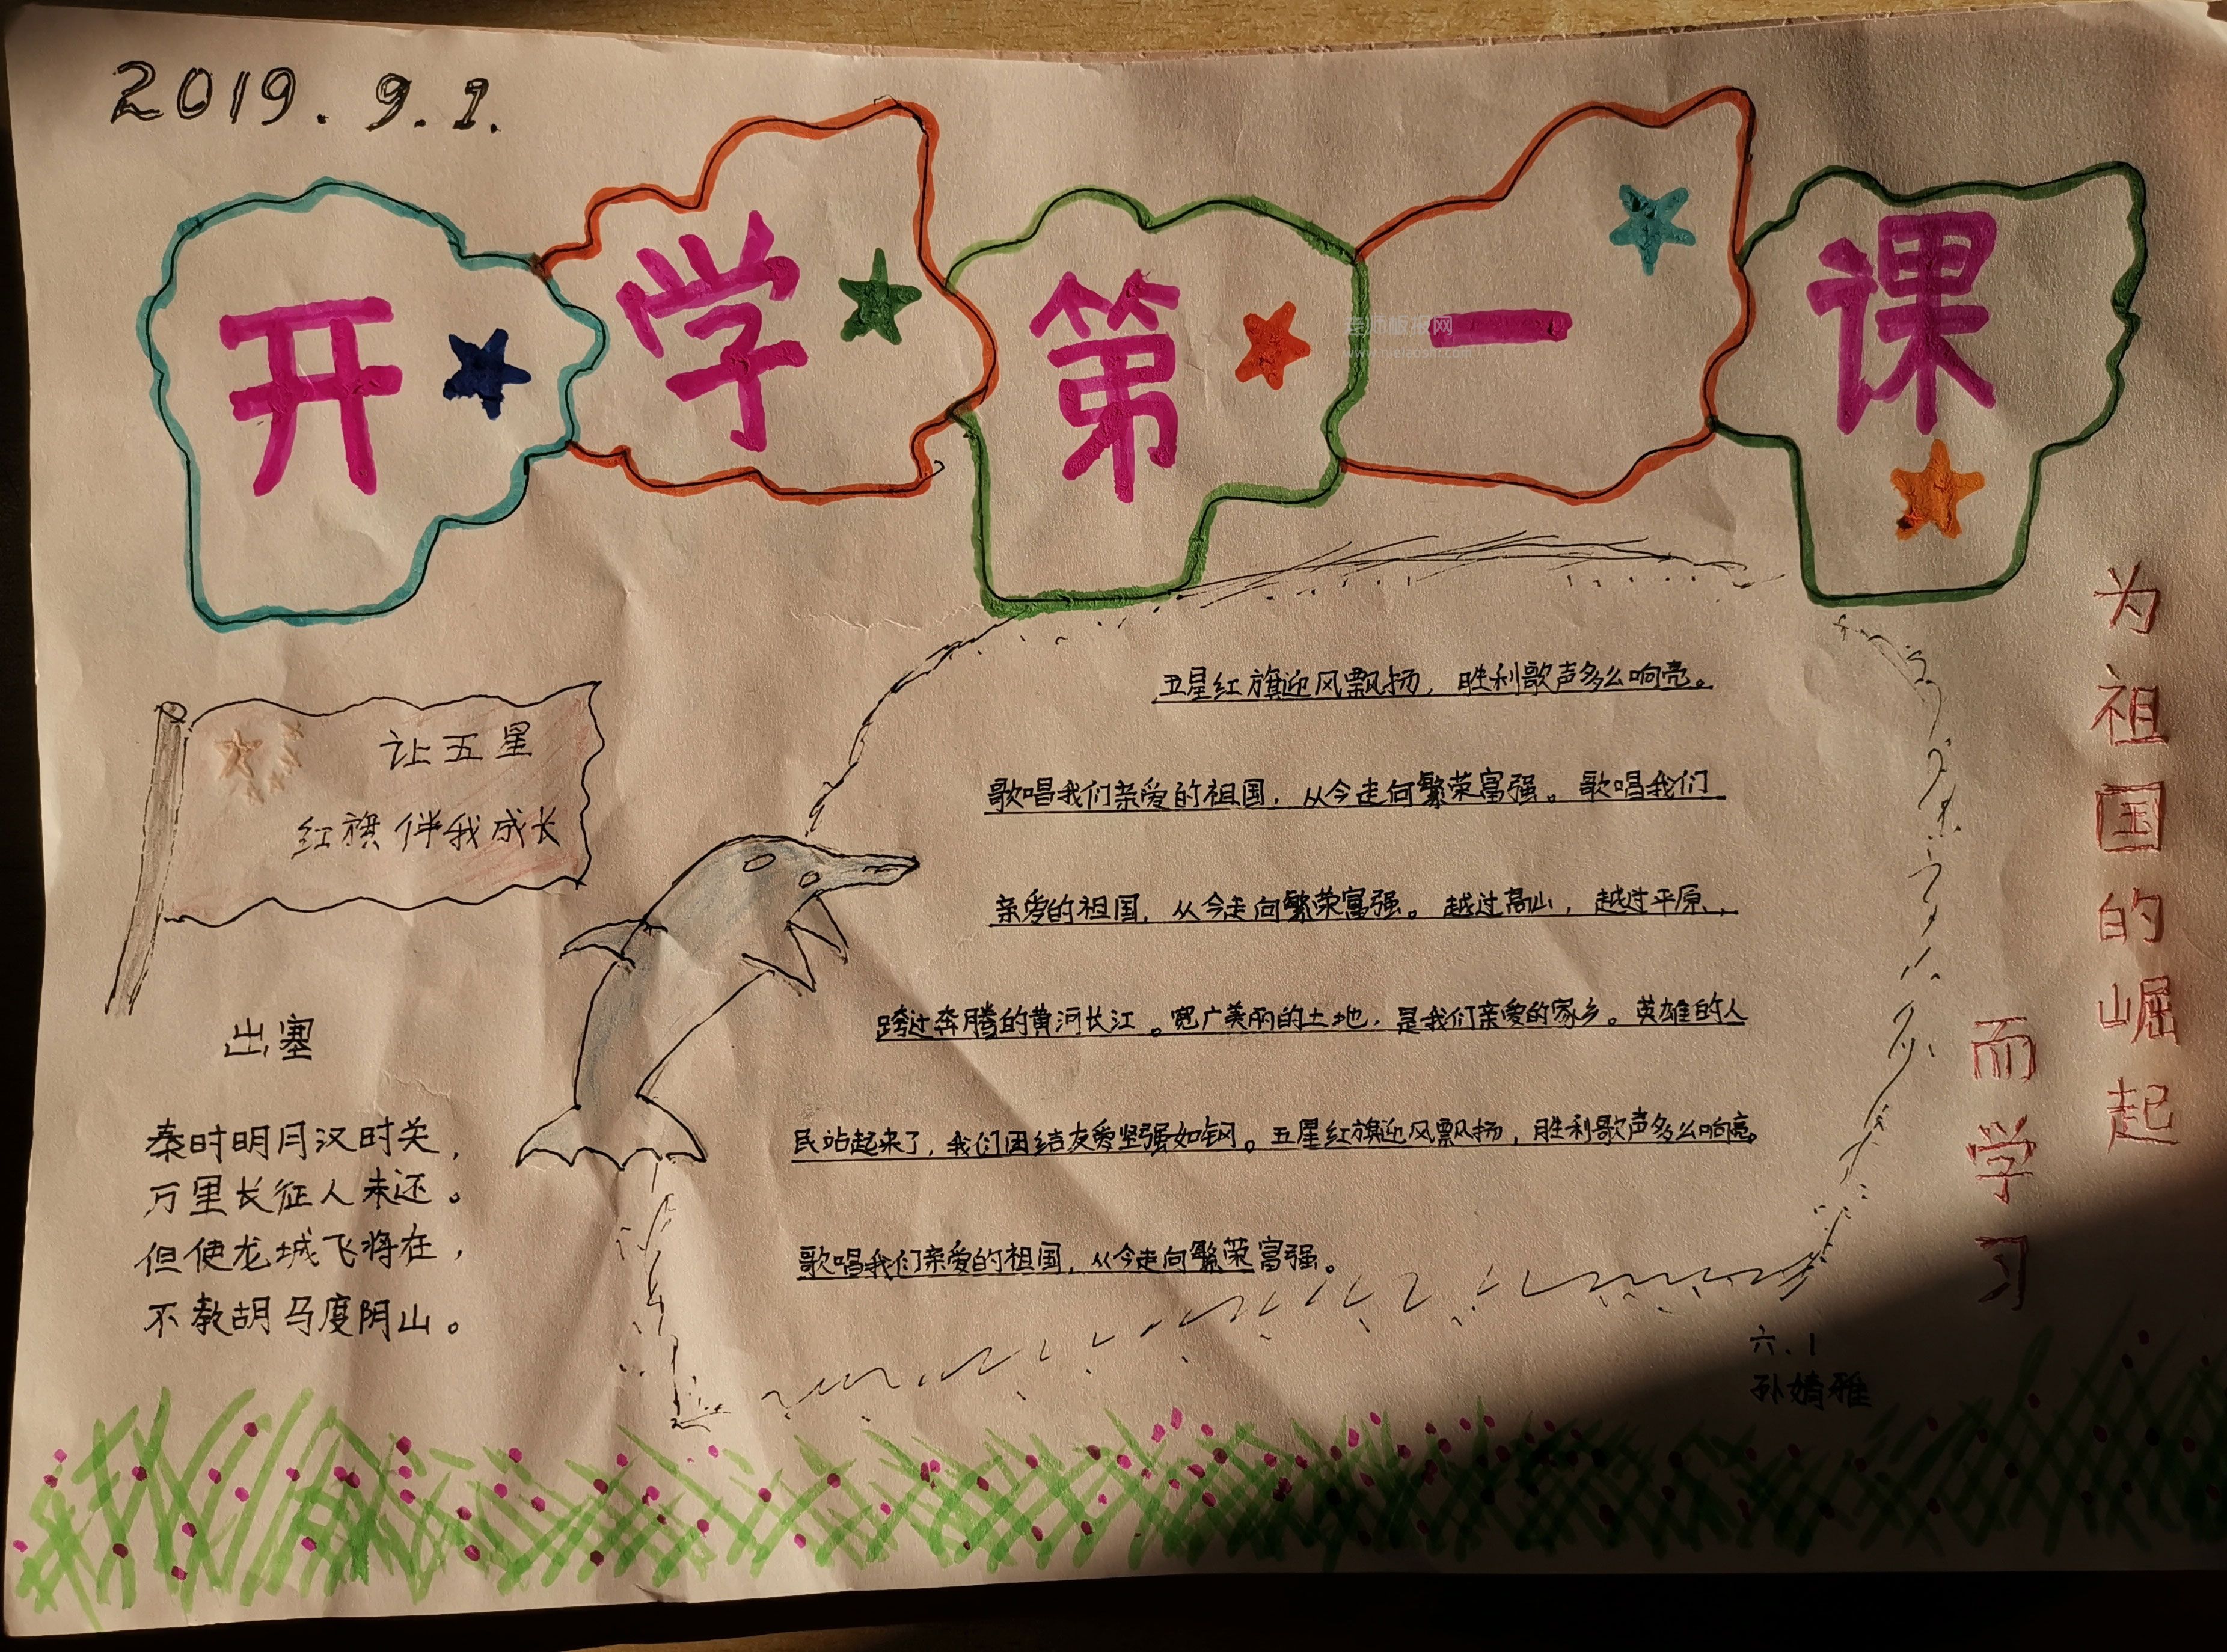 2019.9.1.
开学第一课
老师板报网
让五星
红旗伴我成长
出塞
秦时明月汉时关，
万里长征人未还。
但使龙城飞将在，
不教胡马度阴山。
五星红旗迎风飘扬，胜利歌声多么响亮。
歌唱我们亲爱的祖国，从今走向繁荣富强。歌唱我们
亲爱的祖国，从今走向繁荣富强。越过高山，越过平原，
跨过奔腾的黄河长江。宽广美丽的土地，是我们亲爱的家乡。英雄的人
民站起来了，我们团结友爱坚强如钢。五星红旗迎风飘扬，胜利歌声多么响亮。
歌唱我们亲爱的祖国，从今走向繁荣富强。
为祖国的崛起
而学习
六.1
孙婧雅